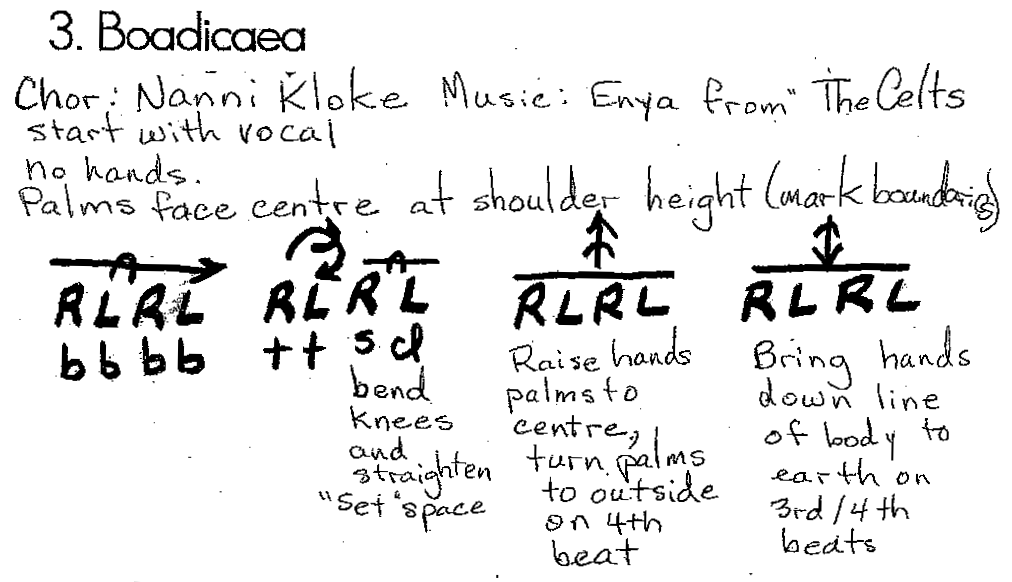 3. Boadicaea
Chor: Nanni Kloke Music: Enya from "The Celts
start with vocal
no hands.
Palms face centre at shoulder height (mark boundaries)
R L R L
b b b b
R L R L
t t s cl
bend
knees
and
straighten
"Set" space
R L R L
Raise hands
palms to
centre,
turn palms
to outside
on 4th
beat
R L R L
Bring hands
down line
of body to
earth on
3rd/4th
beats